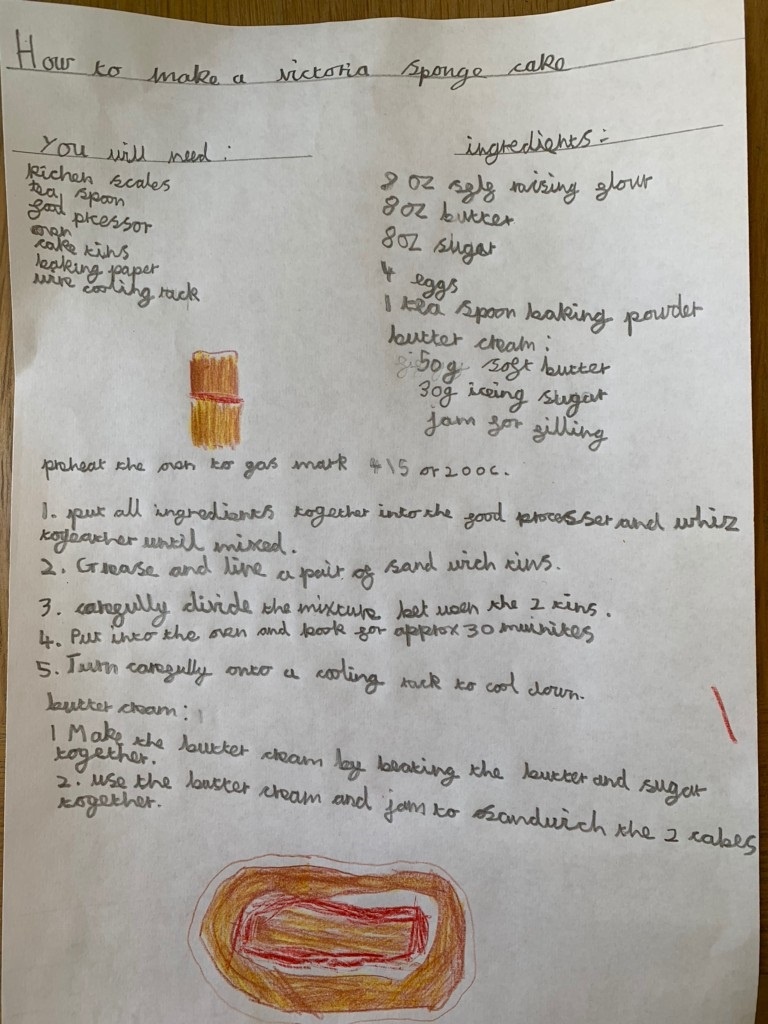 How to make a victoria sponge cake
You will need:
kichen scales
tea spoon
food pressor
oven
cake tins
baking paper
wire cooling rack
ingredients:-
8 oz self raising flour
8oz butter
8oz sugar
4 eggs
1 tea spoon baking powder
butter cream:
50g soft butter
30g iceing sugar
jam for filling
preheat the oven to gas mark 4\5 or 200c.
1. put all ingredients together into the food processer and whiz
togeather until mixed.
2. Grease and line a pair of sand wich tins.
3. carefully divide the mixture bet ween the 2 tins.
4. Put into the oven and book for approx 30 muinites
5. Turn carefully onto a cooling rack to cool down.
butter cream:
1 Make the butter cream by beating the butter and sugar
together.
2. use the butter cream and jam to sandwich the 2 cakes
together.